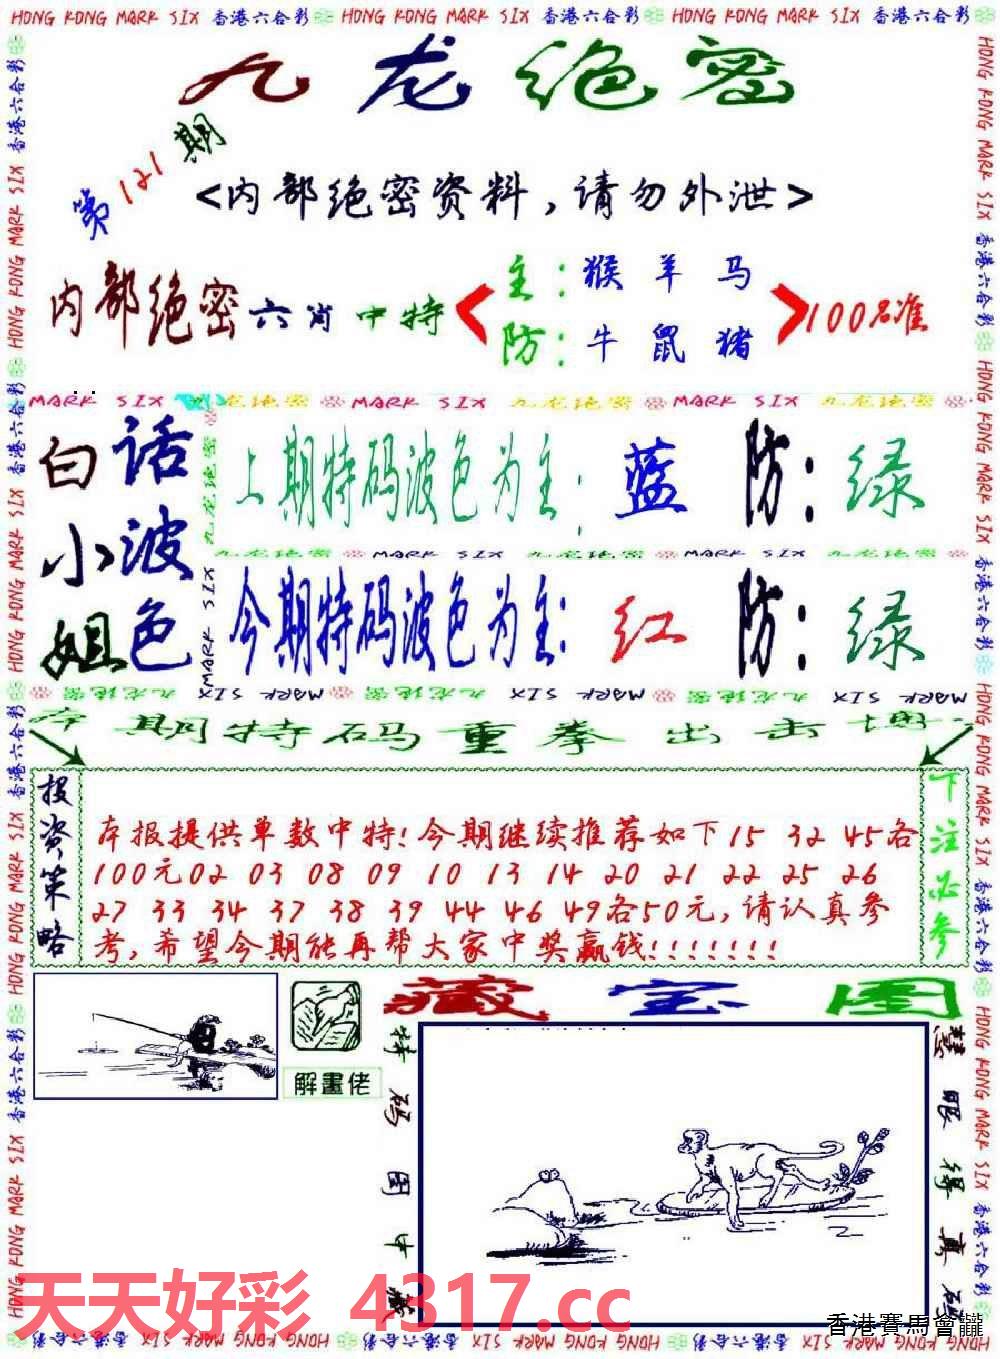 HONG KONG MARK SIX 香港六合彩 HONG KONG MARK SIX 香港六合彩 HONG KONG MARK SIX 香港六合彩
九龙绝密
第121期
<内部绝密资料,请勿外泄>
内部绝密六肖中特
主:猴 羊 马
防:牛 鼠 猪
100名准
MARK SIX 九龙绝密 MARK SIX 九龙绝密 MARK SIX 九龙绝密
白小姐
话波色
上期特码波色为主:蓝 防:绿
九龙绝密 MARK SIX 九龙绝密 MARK SIX 九龙绝密
今期特码波色为主:红 防:绿
九龙绝密 MARK SIX 九龙绝密 MARK SIX 九龙绝密 MARK SIX
本期特码重拳出击
投资策略
本报提供单数中特!今期继续推荐如下15 32 45各
100元02 03 08 09 10 13 14 20 21 22 25 26
27 33 34 37 38 39 44 46 49各50元,请认真参
考,希望今期能再帮大家中奖赢钱!!!!!!!
下注必参
藏宝图
解畫佬
特码图中藏
慧眼得真码
天天好彩 4317.cc
香港賽馬會
HONG KONG MARK SIX 香港六合彩